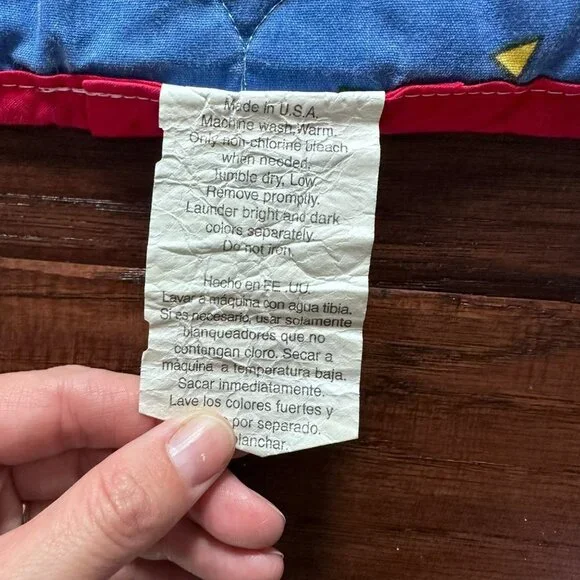 Made in U.S.A.
Machine wash, Warm.
Only non-chlorine bleach
when needed.
Tumble dry, Low.
Remove promptly.
Launder bright and dark
colors separately.
Do not iron.
Hecho en EE .UU.
Lavar a máquina con agua tibia.
Si es necesario, usar solamente
blanqueadores que no
contengan cloro. Secar a
máquina a temperatura baja.
Sacar inmediatamente.
Lave los colores fuertes y
por separado.
planchar.